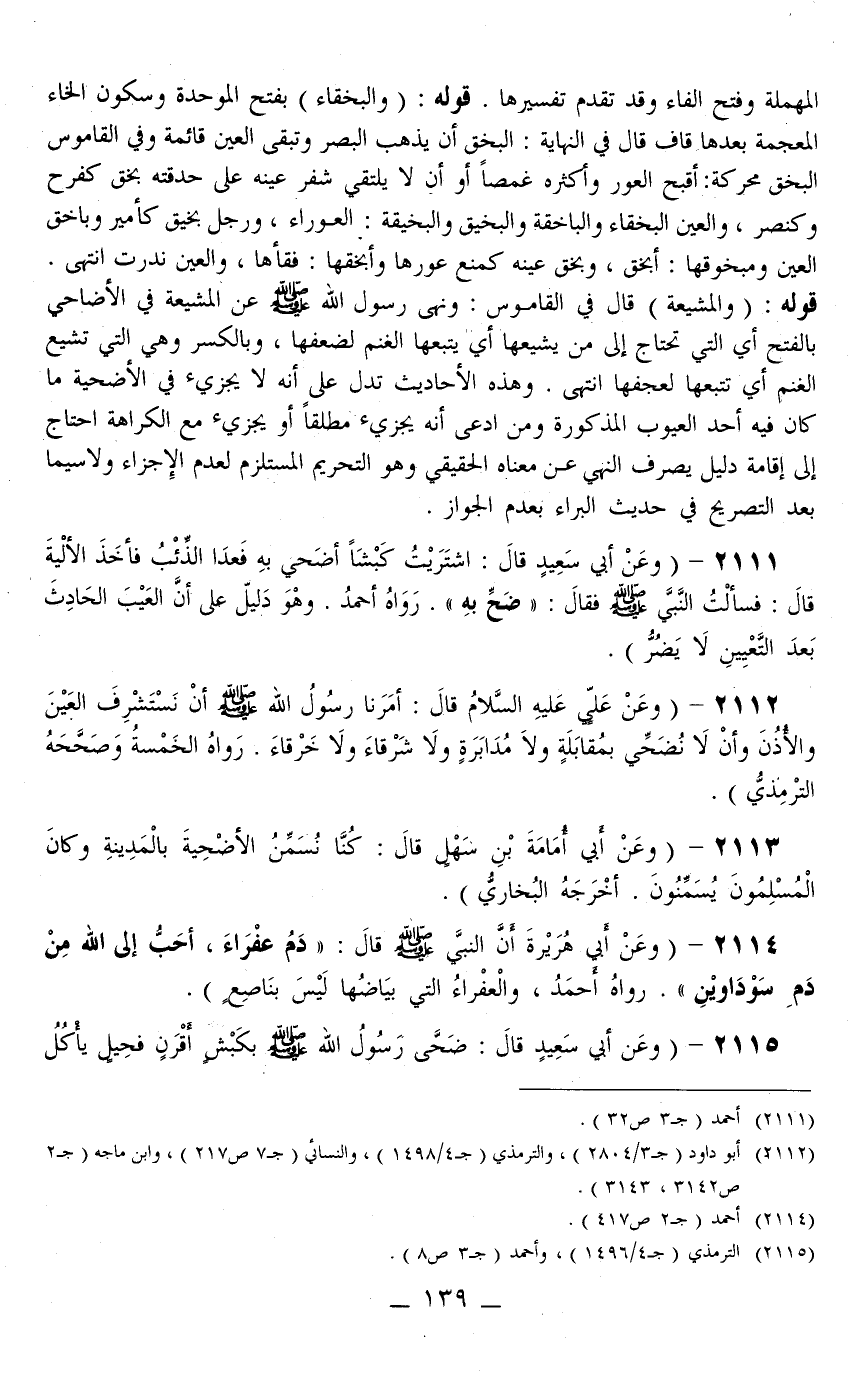 المهملة وفتح الفاء وقد تقدم تفسيرها . قوله : ( والبخقاء ) بفتح الموحدة وسكون الخاء
المعجمة بعدها قاف قال في النهاية : البخق أن يذهب البصر وتبقى العين قائمة وفي القاموس
البخق محركة: أقبح العور وأكثره غمصاً أو أن لا يلتقي شفر عينه على حدقته بخق كفرح
وكنصر ، والعين البخقاء والباخقة والبخيق والبخيقة : العوراء ، ورجل بخيق كأمير وباخق
العين ومبخوقها : أبخق ، وبخق عينه كمنع عورها وأبخقها : فقأها ، والعين ندرت انتهى .
قوله : ( والمشيعة ) قال في القاموس : ونهى رسول الله ﷺ عن المشيعة في الأضاحي
بالفتح أي التي تحتاج إلى من يشيعها أي يتبعها الغنم لضعفها ، وبالكسر وهي التي تشيع
الغنم أي تتبعها لعجفها انتهى . وهذه الأحاديث تدل على أنه لا يجزيء في الأضحية ما
كان فيه أحد العيوب المذكورة ومن ادعى أنه يجزيء مطلقاً أو يجزيء مع الكراهة احتاج
إلى إقامة دليل يصرف النهي عن معناه الحقيقي وهو التحريم المستلزم لعدم الإجزاء ولاسيما
بعد التصريح في حديث البراء بعدم الجواز .
٢١١١ – ( وعَنْ أبي سَعِيدٍ قالَ : اشتَرَيْتُ كَبْشَاً أضَحي بهِ فَعدَا الذِّئْبُ فأخَذَ الألْيةَ
قالَ : فسألْتُ النَّبيَّ ﷺ فقالَ : « ضَحِّ بهِ » . رَوَاهُ أحمدُ . وهْوَ دَليلّ على أنَّ العَيْبَ الحَادِثَ
بَعدَ التَّعْيِينِ لَا يَضُرُّ ) .
٢١١٢ – ( وعَنْ علَيِّ عَليهِ السَّلامُ قالَ : أمَرَنا رسولُ الله ﷺ أنْ نَسْتَشْرِفَ العَيْنَ
والأُذُنَ وأنْ لَا نُضَحِّي بمُقابَلَةٍ ولاَ مُدَابَرَةٍ ولا شَرْقاءَ ولا خَرْقاءَ . رَواهُ الخَمْسةُ وَصَحَّحَهُ
الترْمِذيُّ ) .
٢١١٣ – ( وعَنْ أَبي أُمَامَةَ بْنِ سَهْلٍ قالَ : كُنَّا نُسَمِّنُ الأضْحِيةَ بالْمَدِينةِ وكانَ
الْمُسْلِمُونَ يُسَمِّنُونَ . أخْرَجَهُ البُخاريُّ ) .
٢١١٤ – ( وعَنْ أَبي هُرَيْرةَ أَنَّ النبيَّ ﷺ قالَ : « دَمُ عفْرَاءَ ، أحَبُّ إلى الله مِنْ
دَمِ سَوْدَاويْنِ » . رواهُ أَحمَدُ ، والْعفْراءُ التي بيَاضُها لَيْسَ بنَاصِعٍ ) .
٢١١٥ – ( وعَن أبي سَعِيدٍ قالَ : ضَحَّى رَسُولُ الله ﷺ بكَبْشٍ أَقْرَنٍ فحِيلٍ يأْكُلُ
(٢١١١) أحمد ( جـ٣ ص٣٢ ) .
(٢١١٢) أبو داود ( جـ٢٨٠٤/٣ ) ، والترمذي ( جـ١٤٩٨/٤ ) ، والنسائي ( جـ٧ ص٢١٧ ) ، وابن ماجه ( جـ٢
ص٣١٤٢ ، ٣١٤٣ ) .
(٢١١٤) أحمد ( جـ٢ ص٤١٧ ) .
(٢١١٥) الترمذي ( جـ١٤٩٦/٤ ) ، وأحمد ( جـ٣ ص٨ ) .
– ١٣٩ –